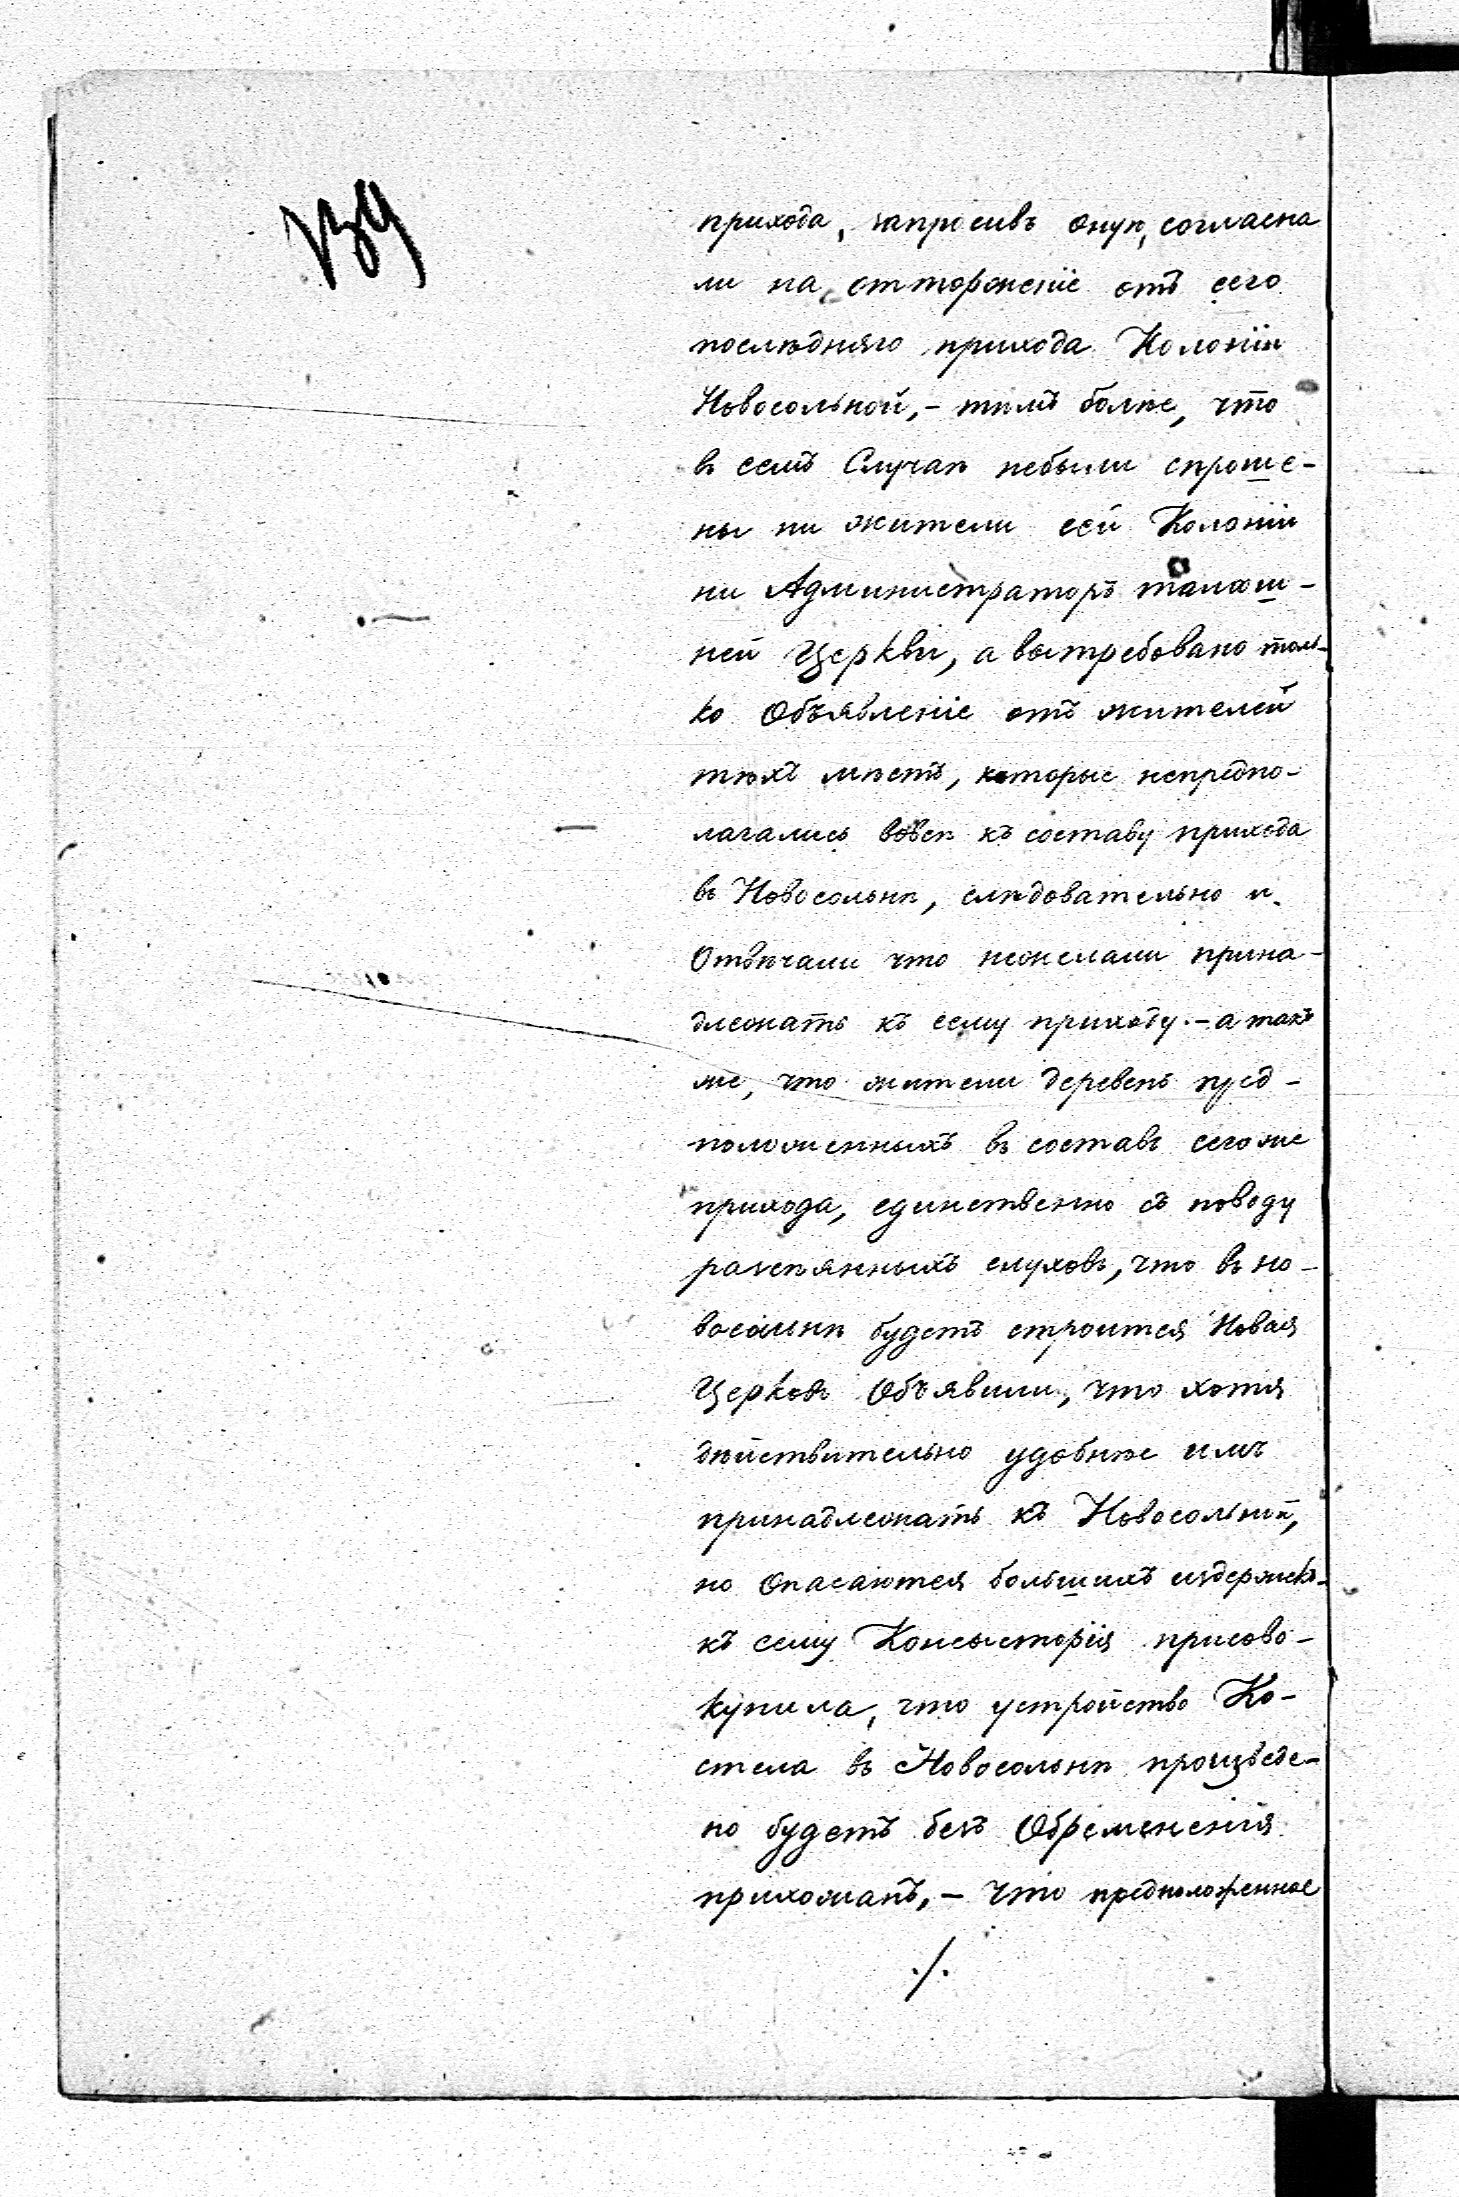 139
прихода, запросивъ оную, согласна
ли на отторженіе отъ сего
послѣдняго прихода Колоніи
Новосольной,- тѣмъ болѣе, что
въ семъ Случаѣ небыли спроше-
ны ни жители сей Колоніи
ни Администраторъ тамош-
ней Церкви, а вытребовано толь-
ко Объявленіе отъ жителей
тѣхъ мѣстъ, которые непредпо-
лагались вовсе къ составу прихода
въ Новосольнѣ, слѣдовательно и
Отвѣчали что нежелали прина-
длежать къ сему приходу.- а так
же, что жители деревень пред-
положенныхъ въ составъ сегоже
прихода, единственно съ поводу
разсѣянныхъ слуховъ, что въ но-
восольнѣ будетъ строится Новая
Церковь Объявили, что хотя
дѣйствительно удобнѣе имъ
принадлежать къ Новосольнѣ,
но Опасаются большихъ издержекъ-
къ сему Консысторія присово-
купила, что устройство Ко-
стела въ Новосольнѣ произведе-
но будетъ безъ Обремененія
прихожанъ,- Что предположенное
./.